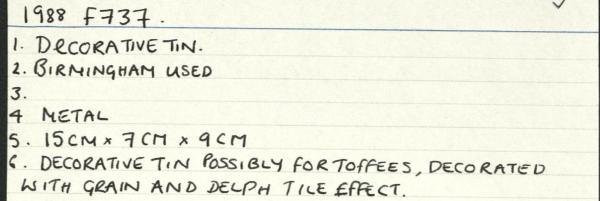 1988 F737.
1. DECORATIVE TIN.
2. BIRMINGHAM USED
3.
4 METAL
5. 15CM x 7CM x 9CM
6. DECORATIVE TIN POSSIBLY FOR TOFFEES, DECORATED
WITH GRAIN AND DELPH TILE EFFECT.